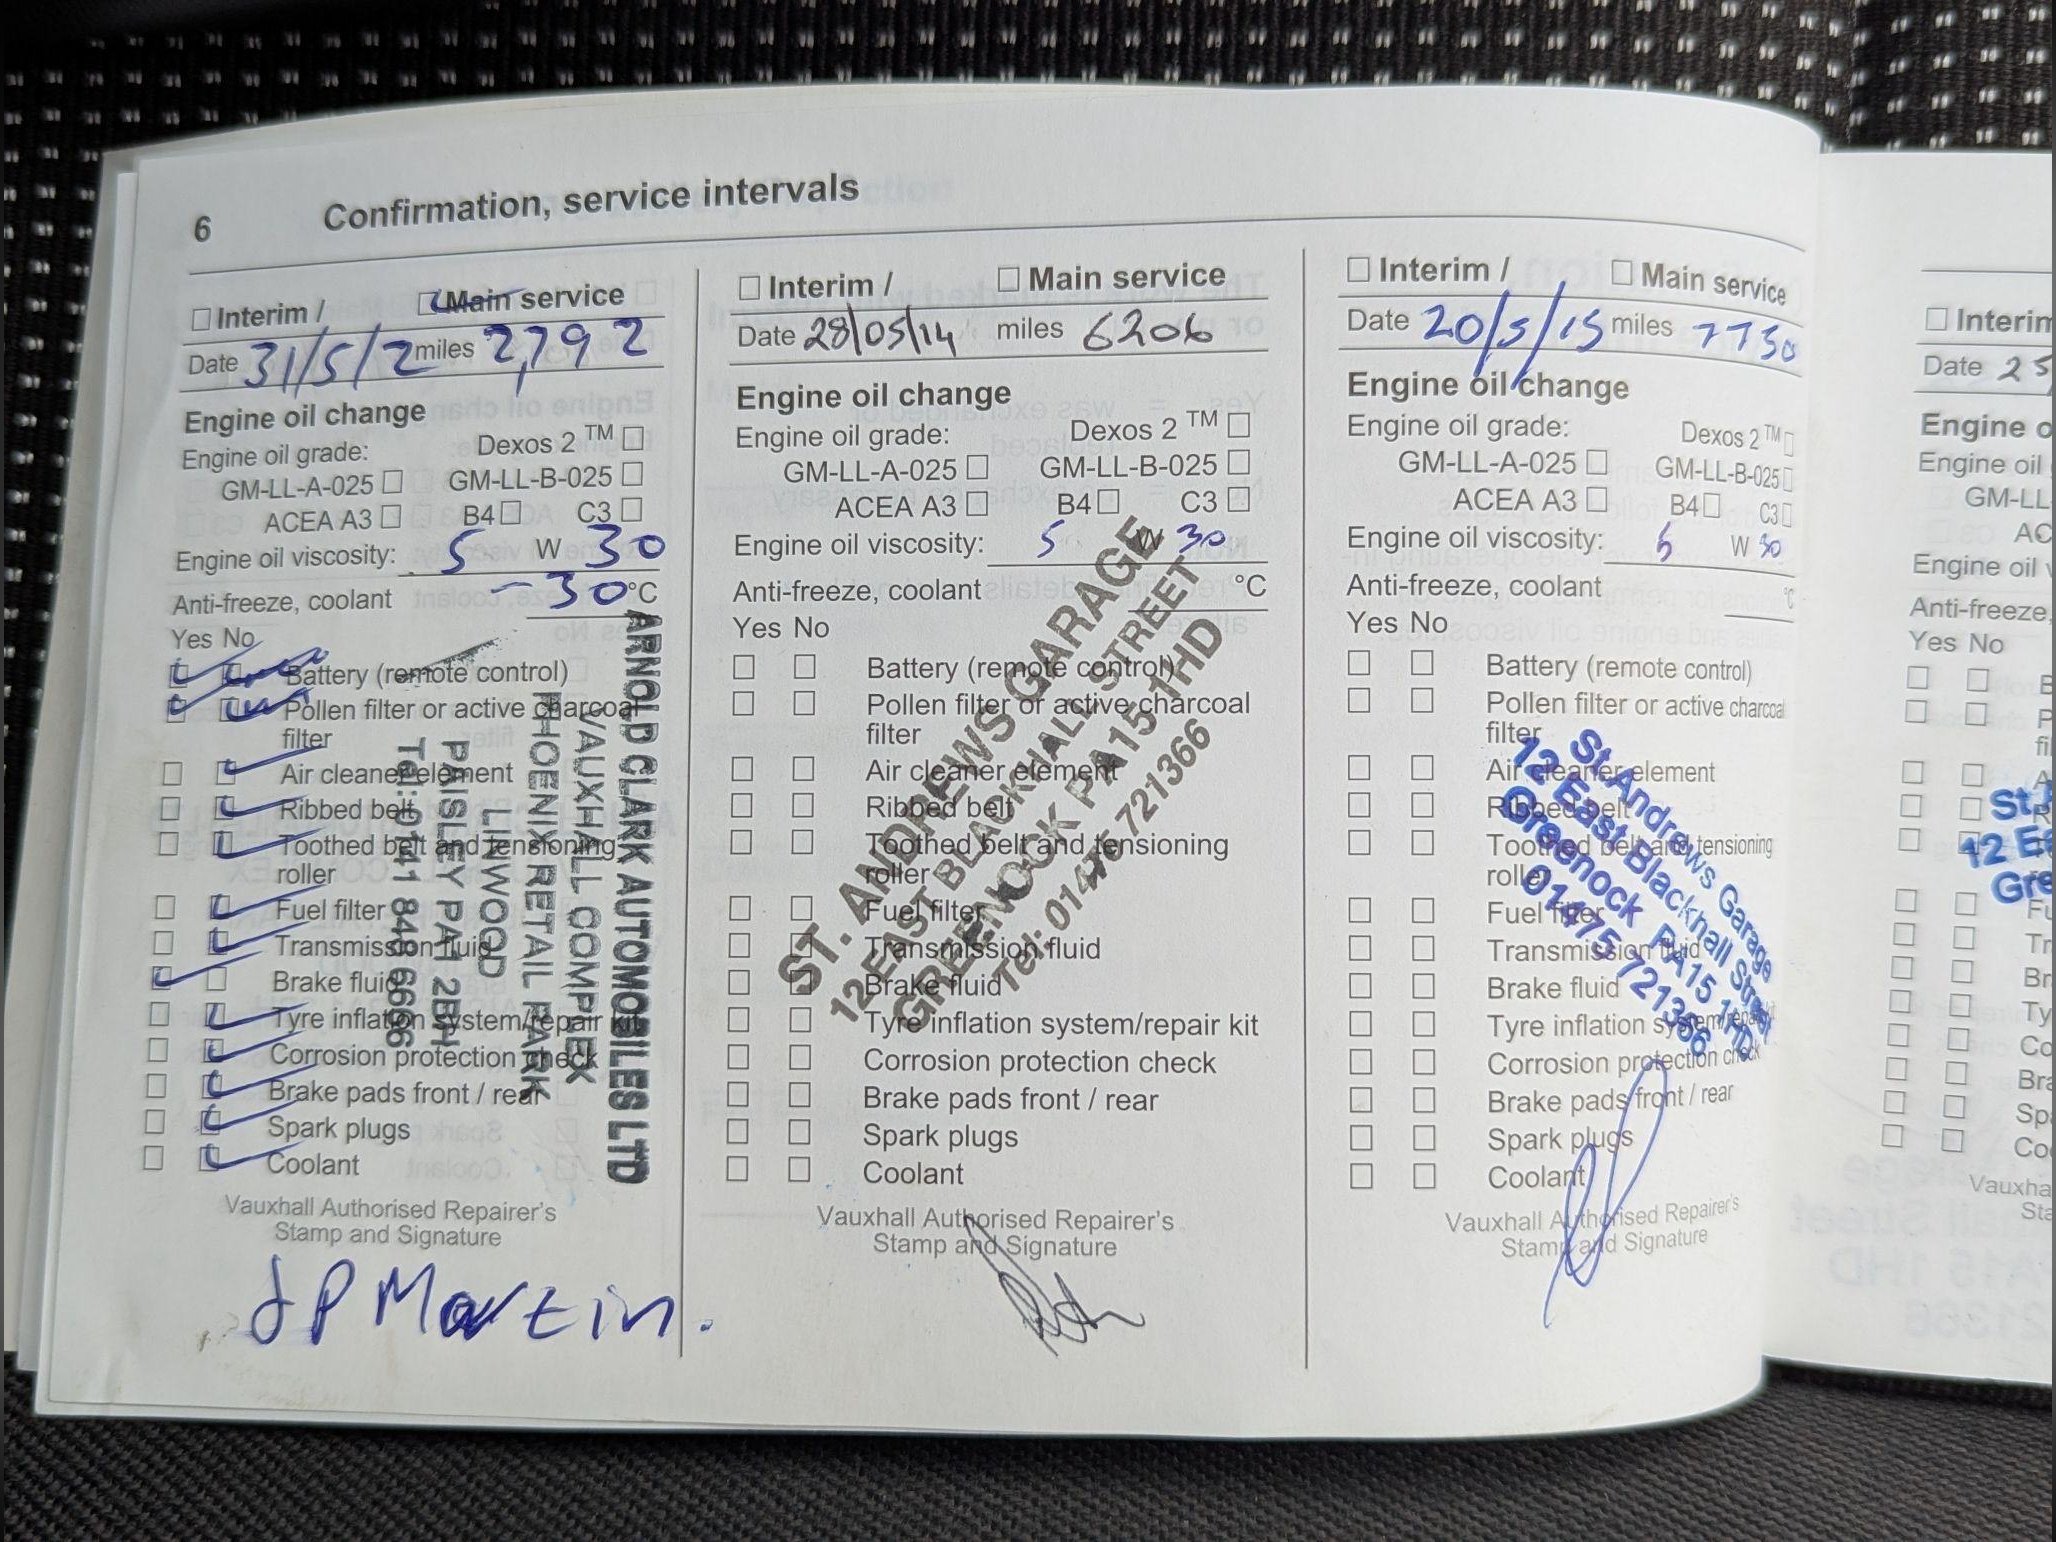 6 Confirmation, service intervals
Interim / Main service
Date 31/5/2 miles 2,792
Engine oil change
Engine oil grade: Dexos 2 ™
GM-LL-A-025 GM-LL-B-025
ACEA A3 B4 C3
Engine oil viscosity: 5 W 30
Anti-freeze, coolant -30 °C
Yes No
Battery (remote control)
Pollen filter or active charcoal
filter
Air cleaner element
Ribbed belt
Toothed belt and tensioning
roller
Fuel filter
Transmission fluid
Brake fluid
Tyre inflation system/repair kit
Corrosion protection check
Brake pads front / rear
Spark plugs
Coolant
ARNOLD CLARK AUTOMOBILES LTD
VAUXHALL COMPLEX
PHOENIX RETAIL PARK
LINWOOD
PAISLEY PA1 2BH
Tel: 0141 848 6666
Vauxhall Authorised Repairer's
Stamp and Signature
JP Martin.
Interim / Main service
Date 28/05/14 miles 6206
Engine oil change
Engine oil grade: Dexos 2 ™
GM-LL-A-025 GM-LL-B-025
ACEA A3 B4 C3
Engine oil viscosity: 5 W 30
Anti-freeze, coolant °C
Yes No
Battery (remote control)
Pollen filter or active charcoal
filter
Air cleaner element
Ribbed belt
Toothed belt and tensioning
roller
Fuel filter
Transmission fluid
Brake fluid
Tyre inflation system/repair kit
Corrosion protection check
Brake pads front / rear
Spark plugs
Coolant
ST. ANDREWS GARAGE
12 EAST BLACKHALL STREET
GREENOCK PA15 1HD
Tel: 01475 721366
Vauxhall Authorised Repairer's
Stamp and Signature
Interim / Main service
Date 20/5/15 miles 7730
Engine oil change
Engine oil grade: Dexos 2 ™
GM-LL-A-025 GM-LL-B-025
ACEA A3 B4 C3
Engine oil viscosity: 5 W 30
Anti-freeze, coolant °C
Yes No
Battery (remote control)
Pollen filter or active charcoal
filter
Air cleaner element
Ribbed belt
Toothed belt and tensioning
roller
Fuel filter
Transmission fluid
Brake fluid
Tyre inflation system/repair kit
Corrosion protection check
Brake pads front / rear
Spark plugs
Coolant
St.Andrews Garage
12 East Blackhall Street
Greenock PA15 1HD
01475 721366
Vauxhall Authorised Repairer's
Stamp and Signature
Interim
Date 25
Engine o
Engine oil
GM-LL
AC
Engine oil v
Anti-freeze,
Yes No
St.
12 Ea
Gre
Fu
Tr
Br
Ty
Co
Bra
Spa
Coo
Vauxha
Sta